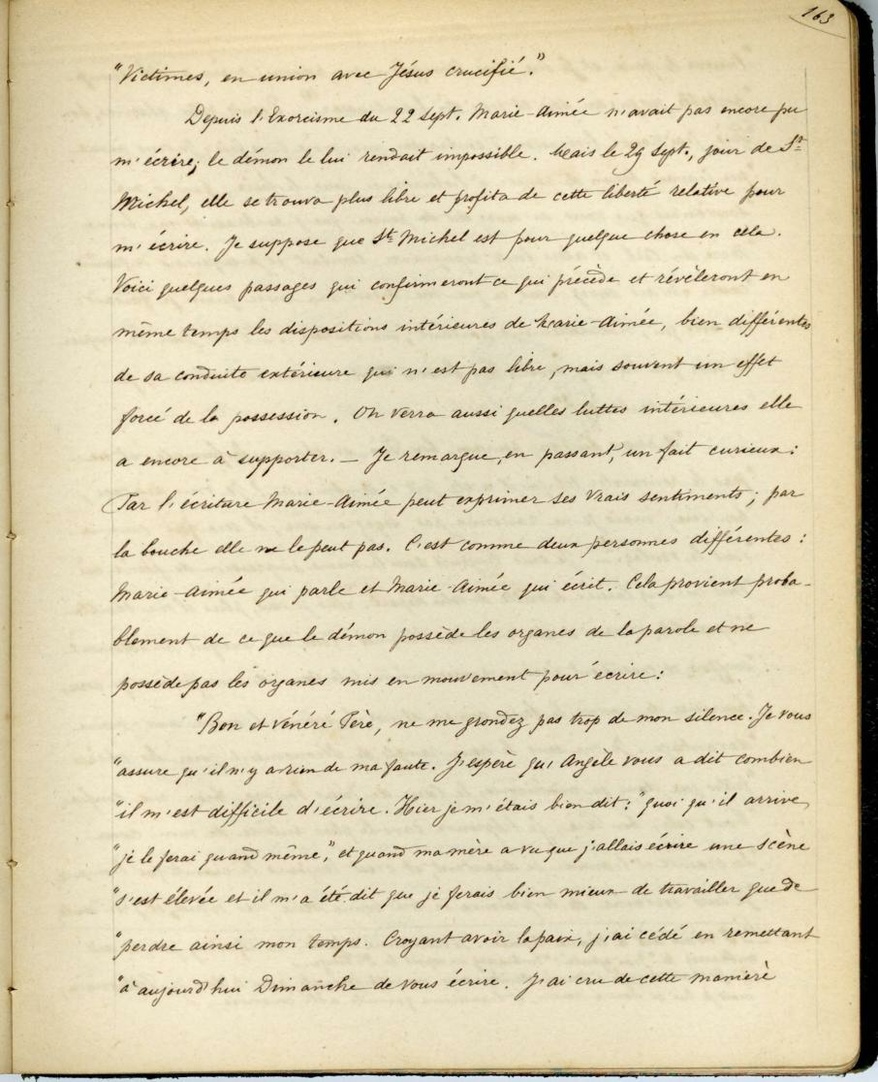 163
"Victimes, en union avec Jésus crucifié."
Depuis l'Exorcisme du 22 Sept. Marie-Aimée n'avait pas encore pu
m'écrire; le démon le lui rendait impossible. Mais le 29 Sept., jour de St
Michel, elle se trouva plus libre et profita de cette liberté relative pour
m'écrire. Je suppose que St Michel est pour quelque chose en cela.
Voici quelques passages qui confirmeront ce qui précède et révèleront en
même temps les dispositions intérieures de Marie-Aimée, bien différentes
de sa conduite extérieure qui n'est pas libre, mais souvent un effet
forcé de la possession. On verra aussi quelles luttes intérieures elle
a encore à supporter. — Je remarque, en passant, un fait curieux:
Par l'écriture Marie-Aimée peut exprimer ses vrais sentiments; par
la bouche elle ne le peut pas. C'est comme deux personnes différentes:
Marie-Aimée qui parle et Marie-Aimée qui écrit. Cela provient proba-
blement de ce que le démon possède les organes de la parole et ne
possède pas les organes mis en mouvement pour écrire:
"Bon et Vénéré Père, ne me grondez pas trop de mon silence. Je vous
"assure qu'il n'y a rien de ma faute. J'espère qu'Angèle vous a dit combien
"il m'est difficile d'écrire. Hier je m'étais bien dit: "quoi qu'il arrive,
"je le ferai quand même", et quand ma mère a vu que j'allais écrire une scène
"s'est élevée et il m'a été dit que je ferais bien mieux de travailler que de
"perdre ainsi mon temps. Croyant avoir la paix, j'ai cédé en remettant
"à aujourd'hui Dimanche de vous écrire. J'ai cru de cette manière